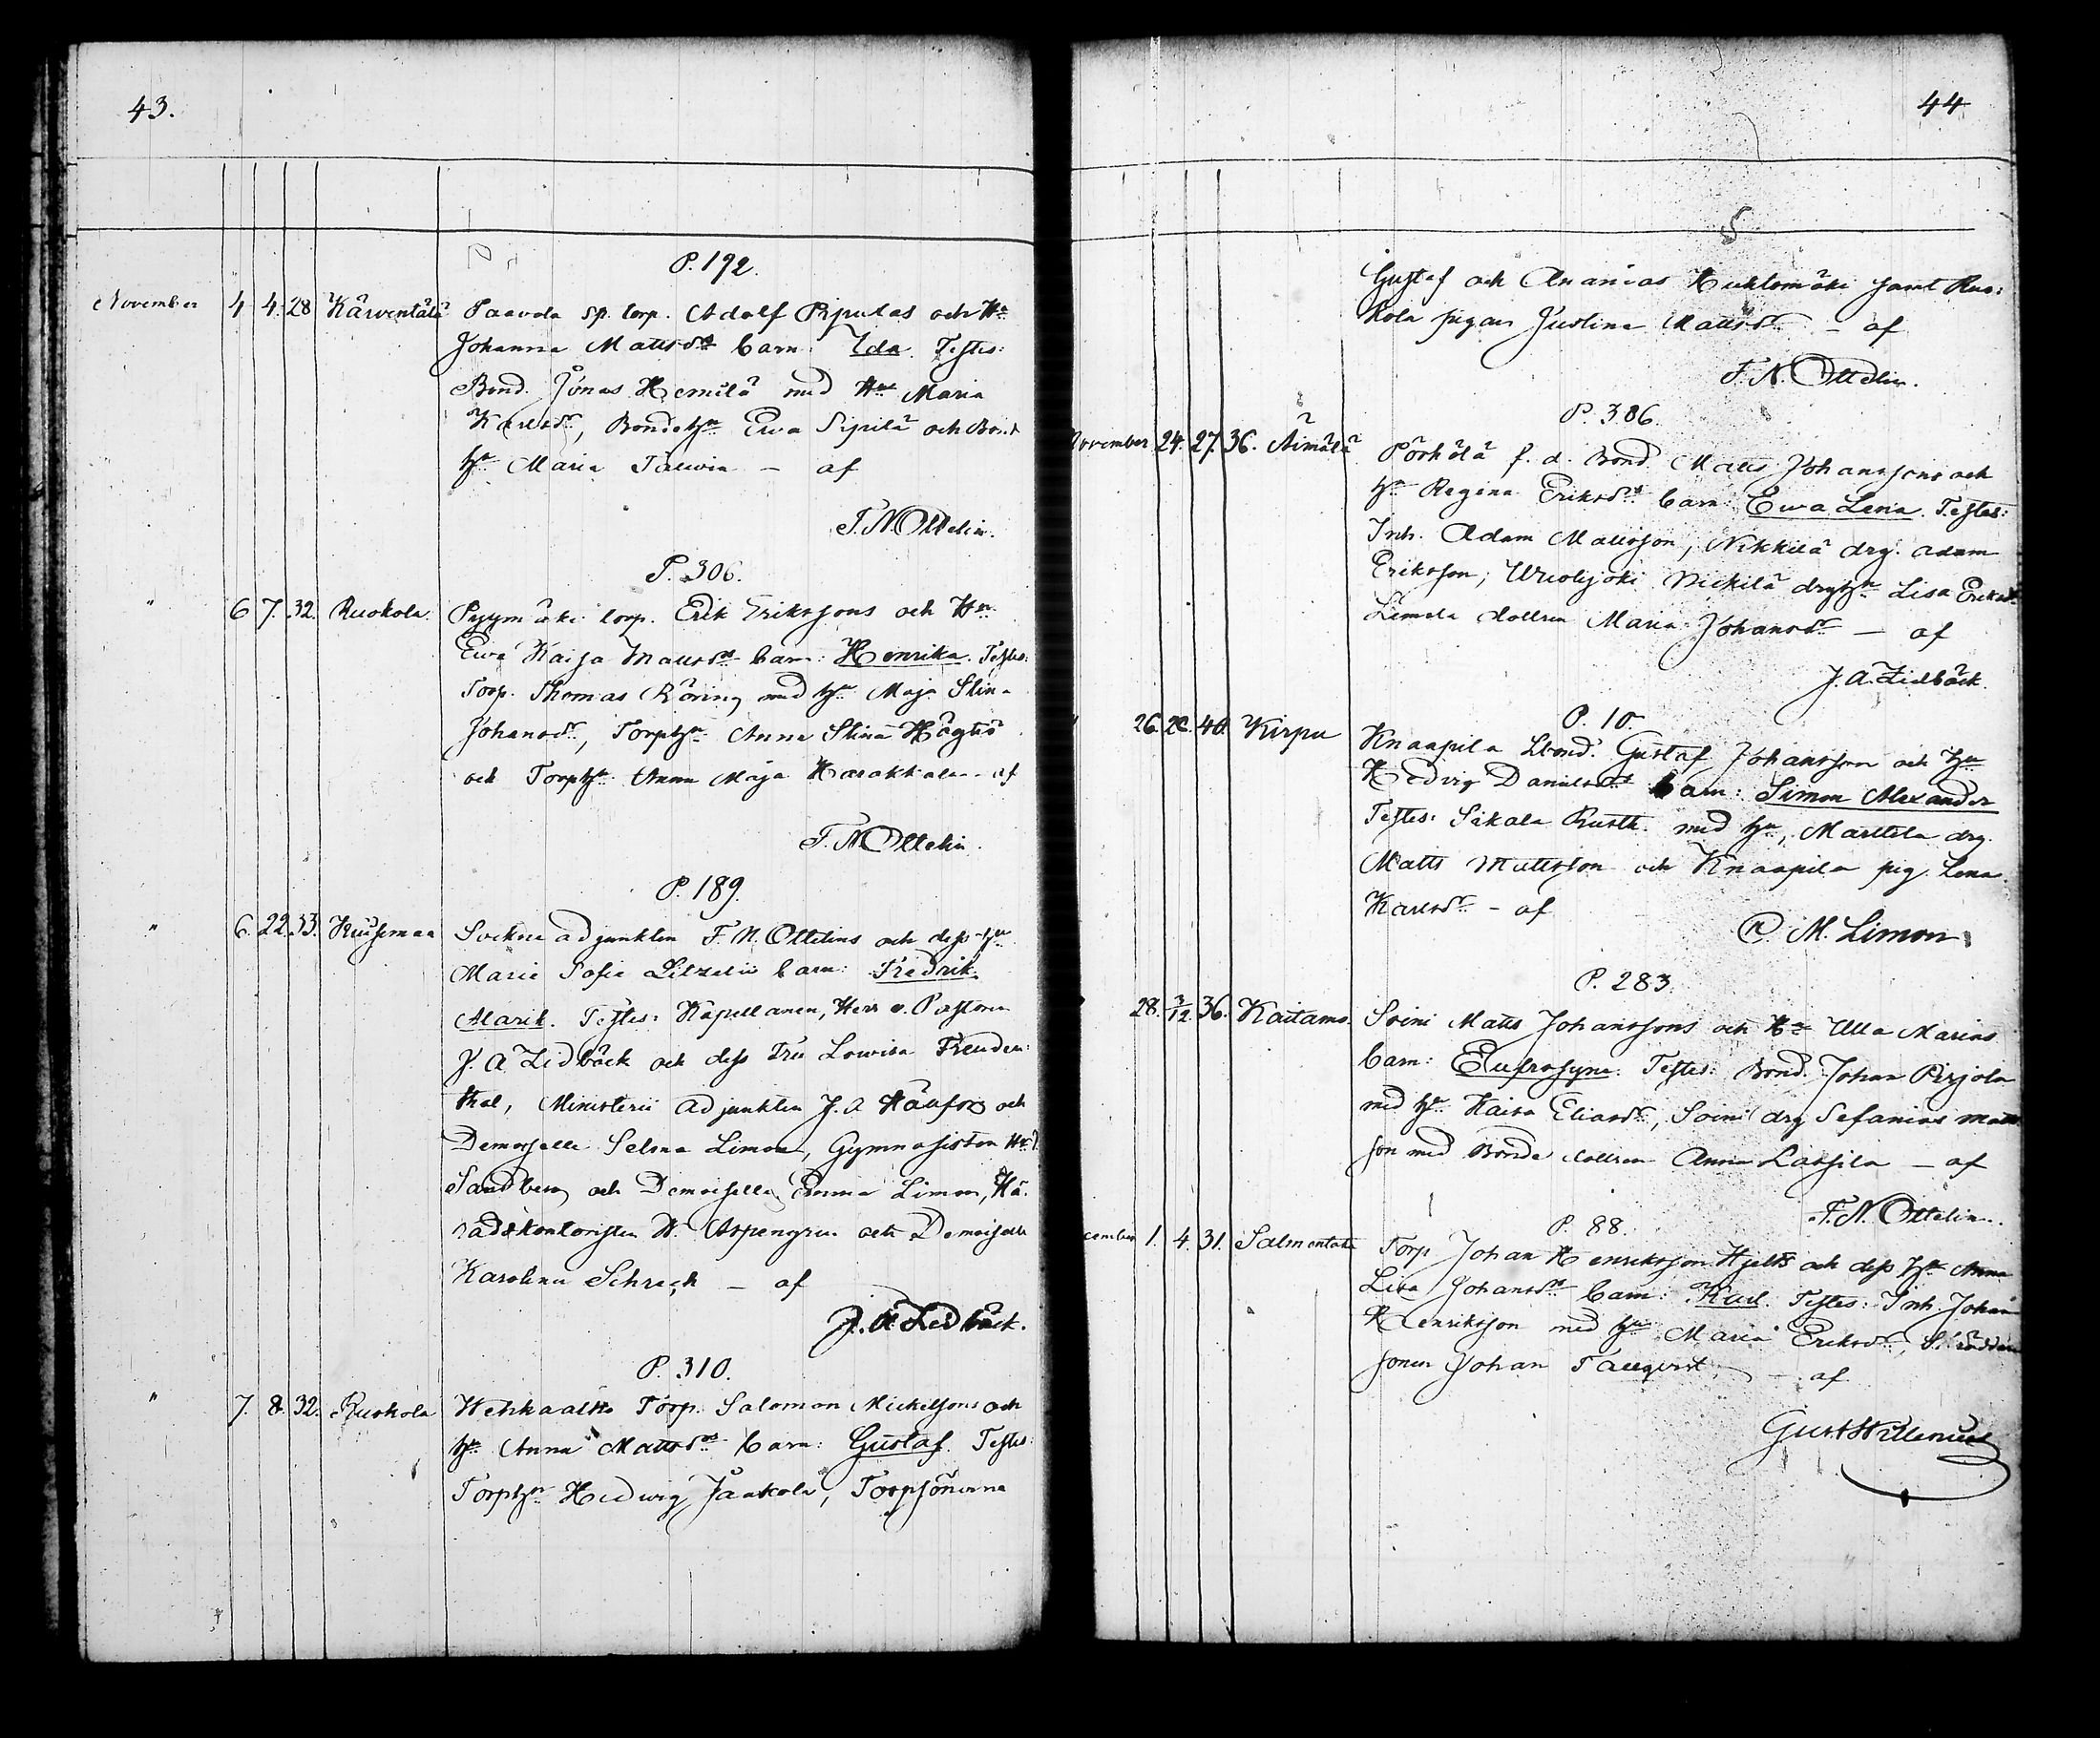 43.
P. 192.
November 4 4. 28 Kärventälä Paavola sp. torp. Adolf Pijpulas och Hu
Johanna Mattsdrs barn: Ida. Testes:
Bond. Jonas Hemilä med Hu Maria
Karlsdr, Bondehu Ewa Sipilä och Bond
hu Maria Talwia – af
F. N. Ottelin.
P. 306.
" 6 7. 32. Ruokola. Pyymäki torp. Erik Erikssons och Hu
Ewa Kaisa Mattsdrs barn: Henrika. Testes:
Torp. Thomas Röring med hu Maja Stina
Johansdr, Torphu Anna Stina Högtis
och Torphu Anna Maja Harakkala – af
F. N. Ottelin.
P. 189.
" 6. 22. 33. Kiusemaa Sockne adjunkten F. N. Ottelins och dess hu
Marie Sofie Litzelii barn: Fredrik
Alarik. Testes: Kapellanen, Herr v. Pastorn
J. A. Lidbäck och dess Fru Lowisa Freuden:
thal, Ministerii adjunkten J. A. Häufors och
Demoiselle Selma Limon, Gymnasisten
Sandberg och Demoiselle Emma Limon, Hä:
radskontoristen W. Aspengren och Demoiselle
Karolina Schreck – af
J. A. Lidbäck.
P. 310.
" 7. 8. 32. Ruokola Wehkaalho Torp. Salomon Mickelsons och
hu Anna Mattsdrs barn: Gustaf. Testes:
Torphu Hedwig Jaakola, Torpsönerna
44
Gustaf och Ananias Huhtamäki samt Ruo:
kola pigan Justina Mattsdr – af
F. N. Ottelin.
P. 386.
November 24. 27. 36. Äimälä Pörhölä f. d. Bond. Matts Johanssons och
hu Regina Eriksdrs barn: Ewa Lena. Testes:
Inh. Adam Mattsson, Nikkilä drg. Adam
Eriksson, Wuolijoki Nickilä drghu Lisa Eriksdr
Limala dottren Maria Johansdr – af
J. A. Lidbäck.
P. 10.
" 26. 40. Kirpu Knaapila Lbond. Gustaf Johansson och hu
Hedvig Danielsdrs barn: Simon Alexander
Testes: Sikala Rusth. med hu, Marttila drg.
Matts Mattsson och Knaapila pig. Lena
Karlsdr – af
M. Limon
P. 283.
28. 3/12 36. Kaitamo. Soini Matts Johanssons och Hu Ulla Marias
barn: Eufrosyne. Testes: Bond. Johan Pirjola
med hu Kaisa Eliasdr, Soini drg Sefanias Matts
son med Bonde dottren Anna Lassila – af
F. N. Ottelin.
P. 88.
cember 1. 4. 31. Salmentaka Torp Johan Henriksson Hjelts och dess hu Anna
Lisa Johansdrs barn: Karl. Testes: Inh. Johan
Henriksson med hu Maria Eriksdr,
sonen Johan Tallqvist – af